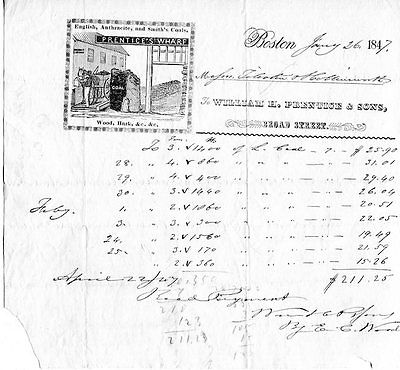 English, Anthracite, and Smith's Coals,
PRENTICE'S WHARF
COAL
Wood, Bark, &c. &c.
Boston Jany 26. 1847.
Messrs.
To WILLIAM H. PRENTICE & SONS,
BROAD STREET.
To 3. 1400 of Coal - 7 - $ 25.90
28. " 4. 860 " " " 31.01
29. " 4. 400 " " " 29.40
30. " 3. 1440 " " " 26.04
Feby. 1. " 2. 1860 " " " 20.51
" 3. 300 " " " 22.05
24. " 2. 1560 " " " 19.49
25. " 3. 170 " " " 21.59
" 2. 360 " " " 15.26
$211.25
April 22/47
Recd Payment
By E. C. Wood
123
211.13